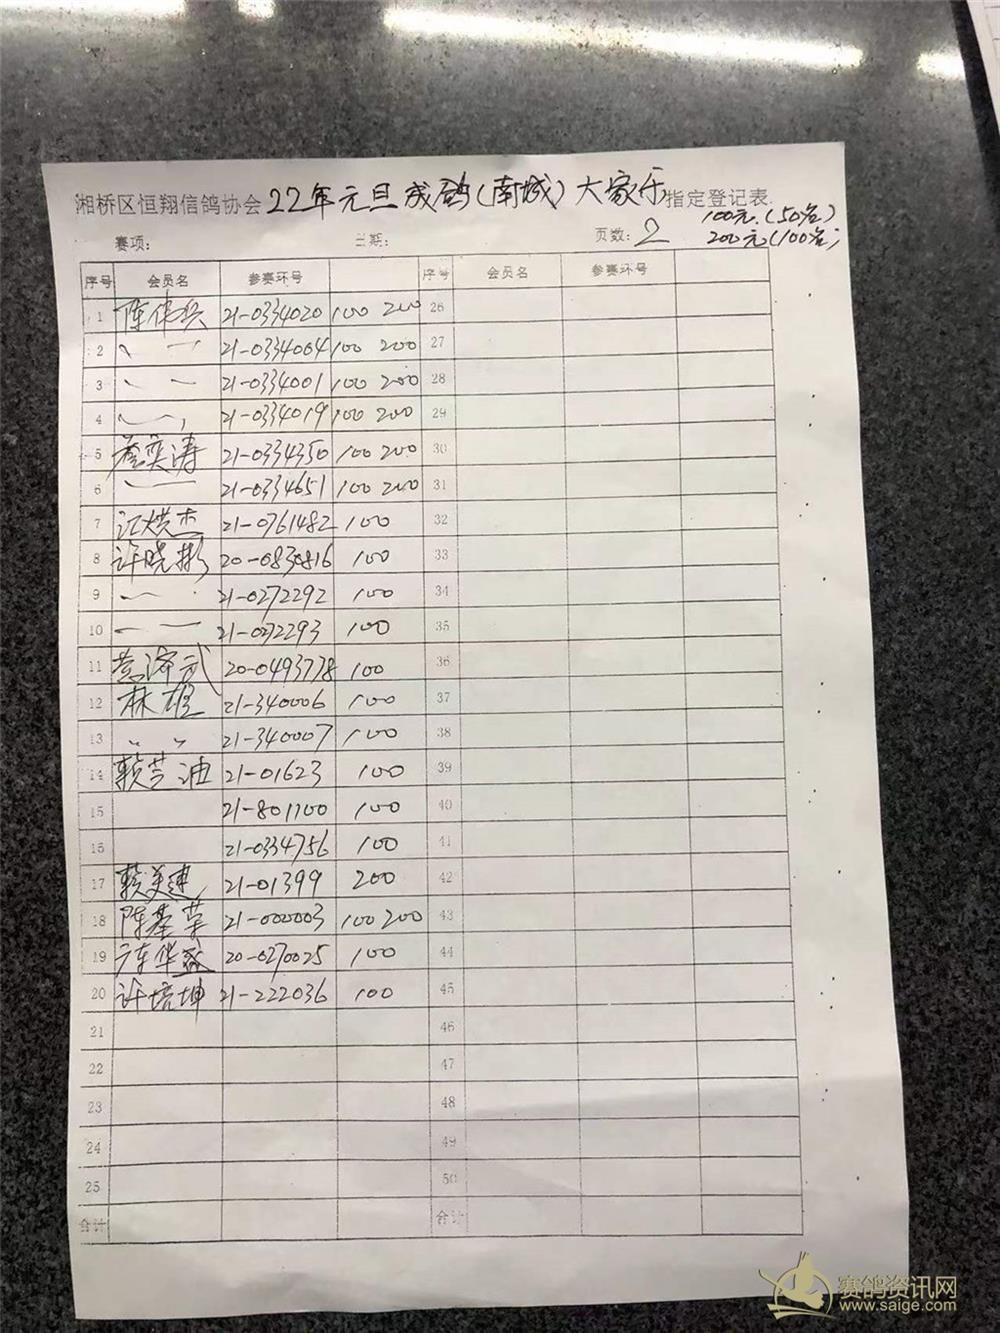 湘桥区恒翔信鸽协会 22年元旦成鸽(南城)大家乐 指定登记表
100元.(50名)
赛项: 日期: 页数: 2 200元(100名)
序号 会员名 参赛环号 序号 会员名 参赛环号
1 陈伟兵 21-0334020 100 200 26
2 21-0334004 100 200 27
3 21-0334001 100 200 28
4 21-0334019 100 200 29
5 奕涛 21-0334350 100 200 30
6 21-0334651 100 200 31
7 江烘杰 21-0761482 100 32
8 许晓彬 20-0830816 100 33
9 21-0272292 100 34
10 21-072293 100 35
11 黄泽武 20-0493778 100 36
12 林雄 21-340006 100 37
13 〃 〃 21-340007 100 38
14 赖芝油 21-01623 100 39
15 21-801100 100 40
16 21-0334756 100 41
17 赖美建 21-01399 200 42
18 陈基荣 21-000003 100 200 43
19 华盛 20-0270025 100 44
20 许培坤 21-222036 100 45
21 46
22 47
23 48
24 49
25 50
合计 合计
赛鸽资讯网
www.saige.com